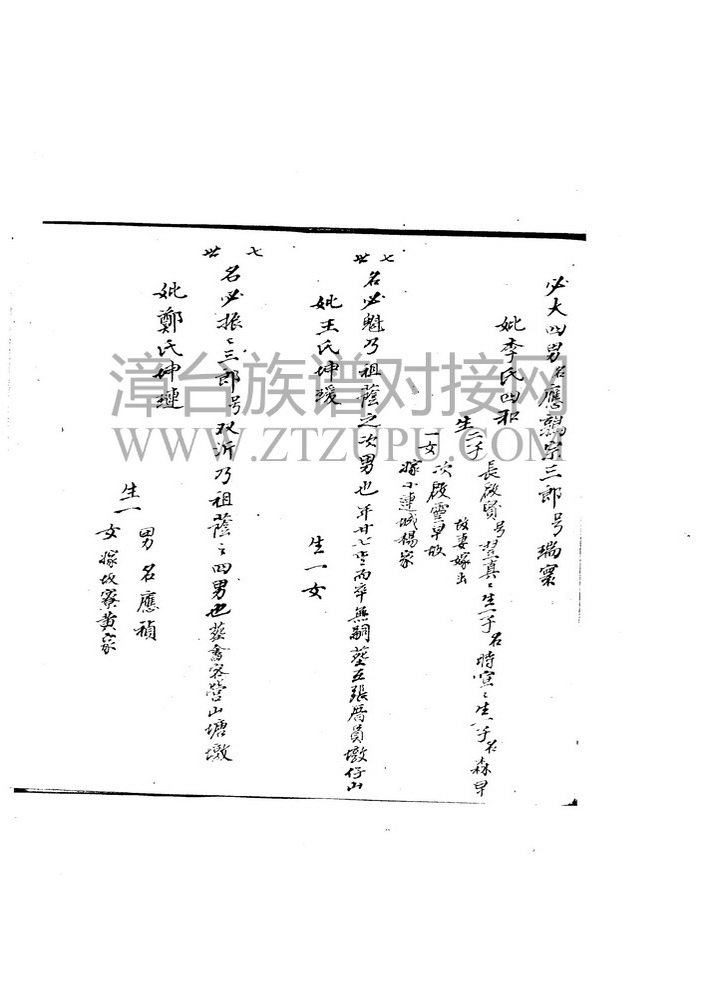 必大四男名應鵠宗三郎号瑞寰
妣李氏四和
生二子長啟賢号翌真〻生一子名時宣〻生一子名森早
故妻嫁出
次啟靈早故
一女
嫁小連城楊家
七世
名必魁乃祖蔭之次男也年廿七歲而卒無嗣塟在張厝員墩仔山
妣王氏坤瑗
生一女
七世
名必振〻三郎号双沂乃祖蔭之四男也塟畬客營山塘墩
妣鄭氏坤璉
生一
男名應禎
女嫁故寮黃家
漳台族谱对接网
WWW.ZTZUPU.COM